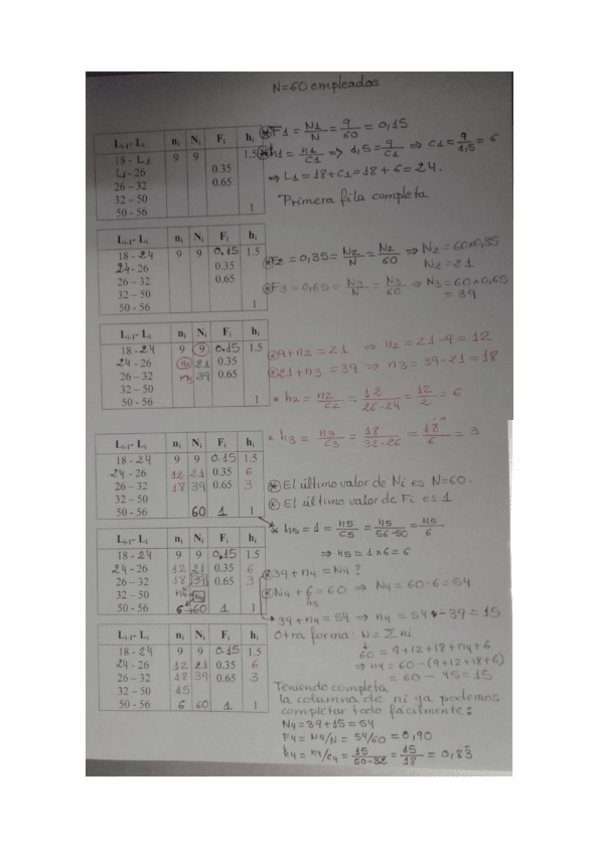 N=60 empleados
Li-1- Li ni Ni Fi hi
18 - L1 9 9 1.5
L1 - 26 0.35
26 – 32 0.65
32 – 50
50 - 56 1
⊛ F1 = N1/N = 9/60 = 0,15
⊛ h1 = n1/c1 ⇒ 1,5 = 9/c1 ⇒ c1 = 9/1,5 = 6
⇒ L1 = 18 + c1 = 18 + 6 = 24.
Primera fila completa
Li-1- Li ni Ni Fi hi
18 - 24 9 9 0.15 1.5
24 - 26 0.35
26 – 32 0.65
32 – 50
50 - 56 1
⊛ F2 = 0,35 = N2/N = N2/60 ⇒ N2 = 60×0,35
N2 = 21
⊛ F3 = 0,65 = N3/N = N3/60 ⇒ N3 = 60×0,65
= 39
Li-1- Li ni Ni Fi hi
18 - 24 9 9 0.15 1.5
24 - 26 n2 21 0.35
26 – 32 n3 39 0.65
32 – 50
50 - 56 1
⊛ 9 + n2 = 21 ⇒ n2 = 21 - 9 = 12
⊛ 21 + n3 = 39 ⇒ n3 = 39 - 21 = 18
* h2 = n2/c2 = 12/26-24 = 12/2 = 6
* h3 = n3/c3 = 18/32-26 = 18/6 = 3
Li-1- Li ni Ni Fi hi
18 - 24 9 9 0.15 1.5
24 - 26 12 21 0.35 6
26 – 32 18 39 0.65 3
32 – 50
50 - 56 60 1 1
⊛ El último valor de Ni es N=60.
⊛ El último valor de Fi es 1.
* h5 = 1 = n5/c5 = n5/56-50 = n5/6
⇒ n5 = 1×6 = 6
Li-1- Li ni Ni Fi hi
18 - 24 9 9 0.15 1.5
24 - 26 12 21 0.35 6
26 – 32 18 39 0.65 3
32 – 50 n4 N4
50 - 56 6 60 1 1
⊛ 39 + n4 = N4?
⊛ N4 + 6 = 60 ⇒ N4 = 60 - 6 = 54
n5
* 39 + n4 = 54 ⇒ n4 = 54 - 39 = 15
Otra forma: N = Σni
60 = 9 + 12 + 18 + n4 + 6
⇒ n4 = 60 - (9 + 12 + 18 + 6)
= 60 - 45 = 15
Li-1- Li ni Ni Fi hi
18 - 24 9 9 0.15 1.5
24 - 26 12 21 0.35 6
26 – 32 18 39 0.65 3
32 – 50 15
50 - 56 6 60 1 1
Teniendo completa
la columna de ni ya podemos
completar todo fácilmente:
N4 = 39 + 15 = 54
F4 = N4/N = 54/60 = 0,90
h4 = n4/c4 = 15/50-32 = 15/18 = 0,83